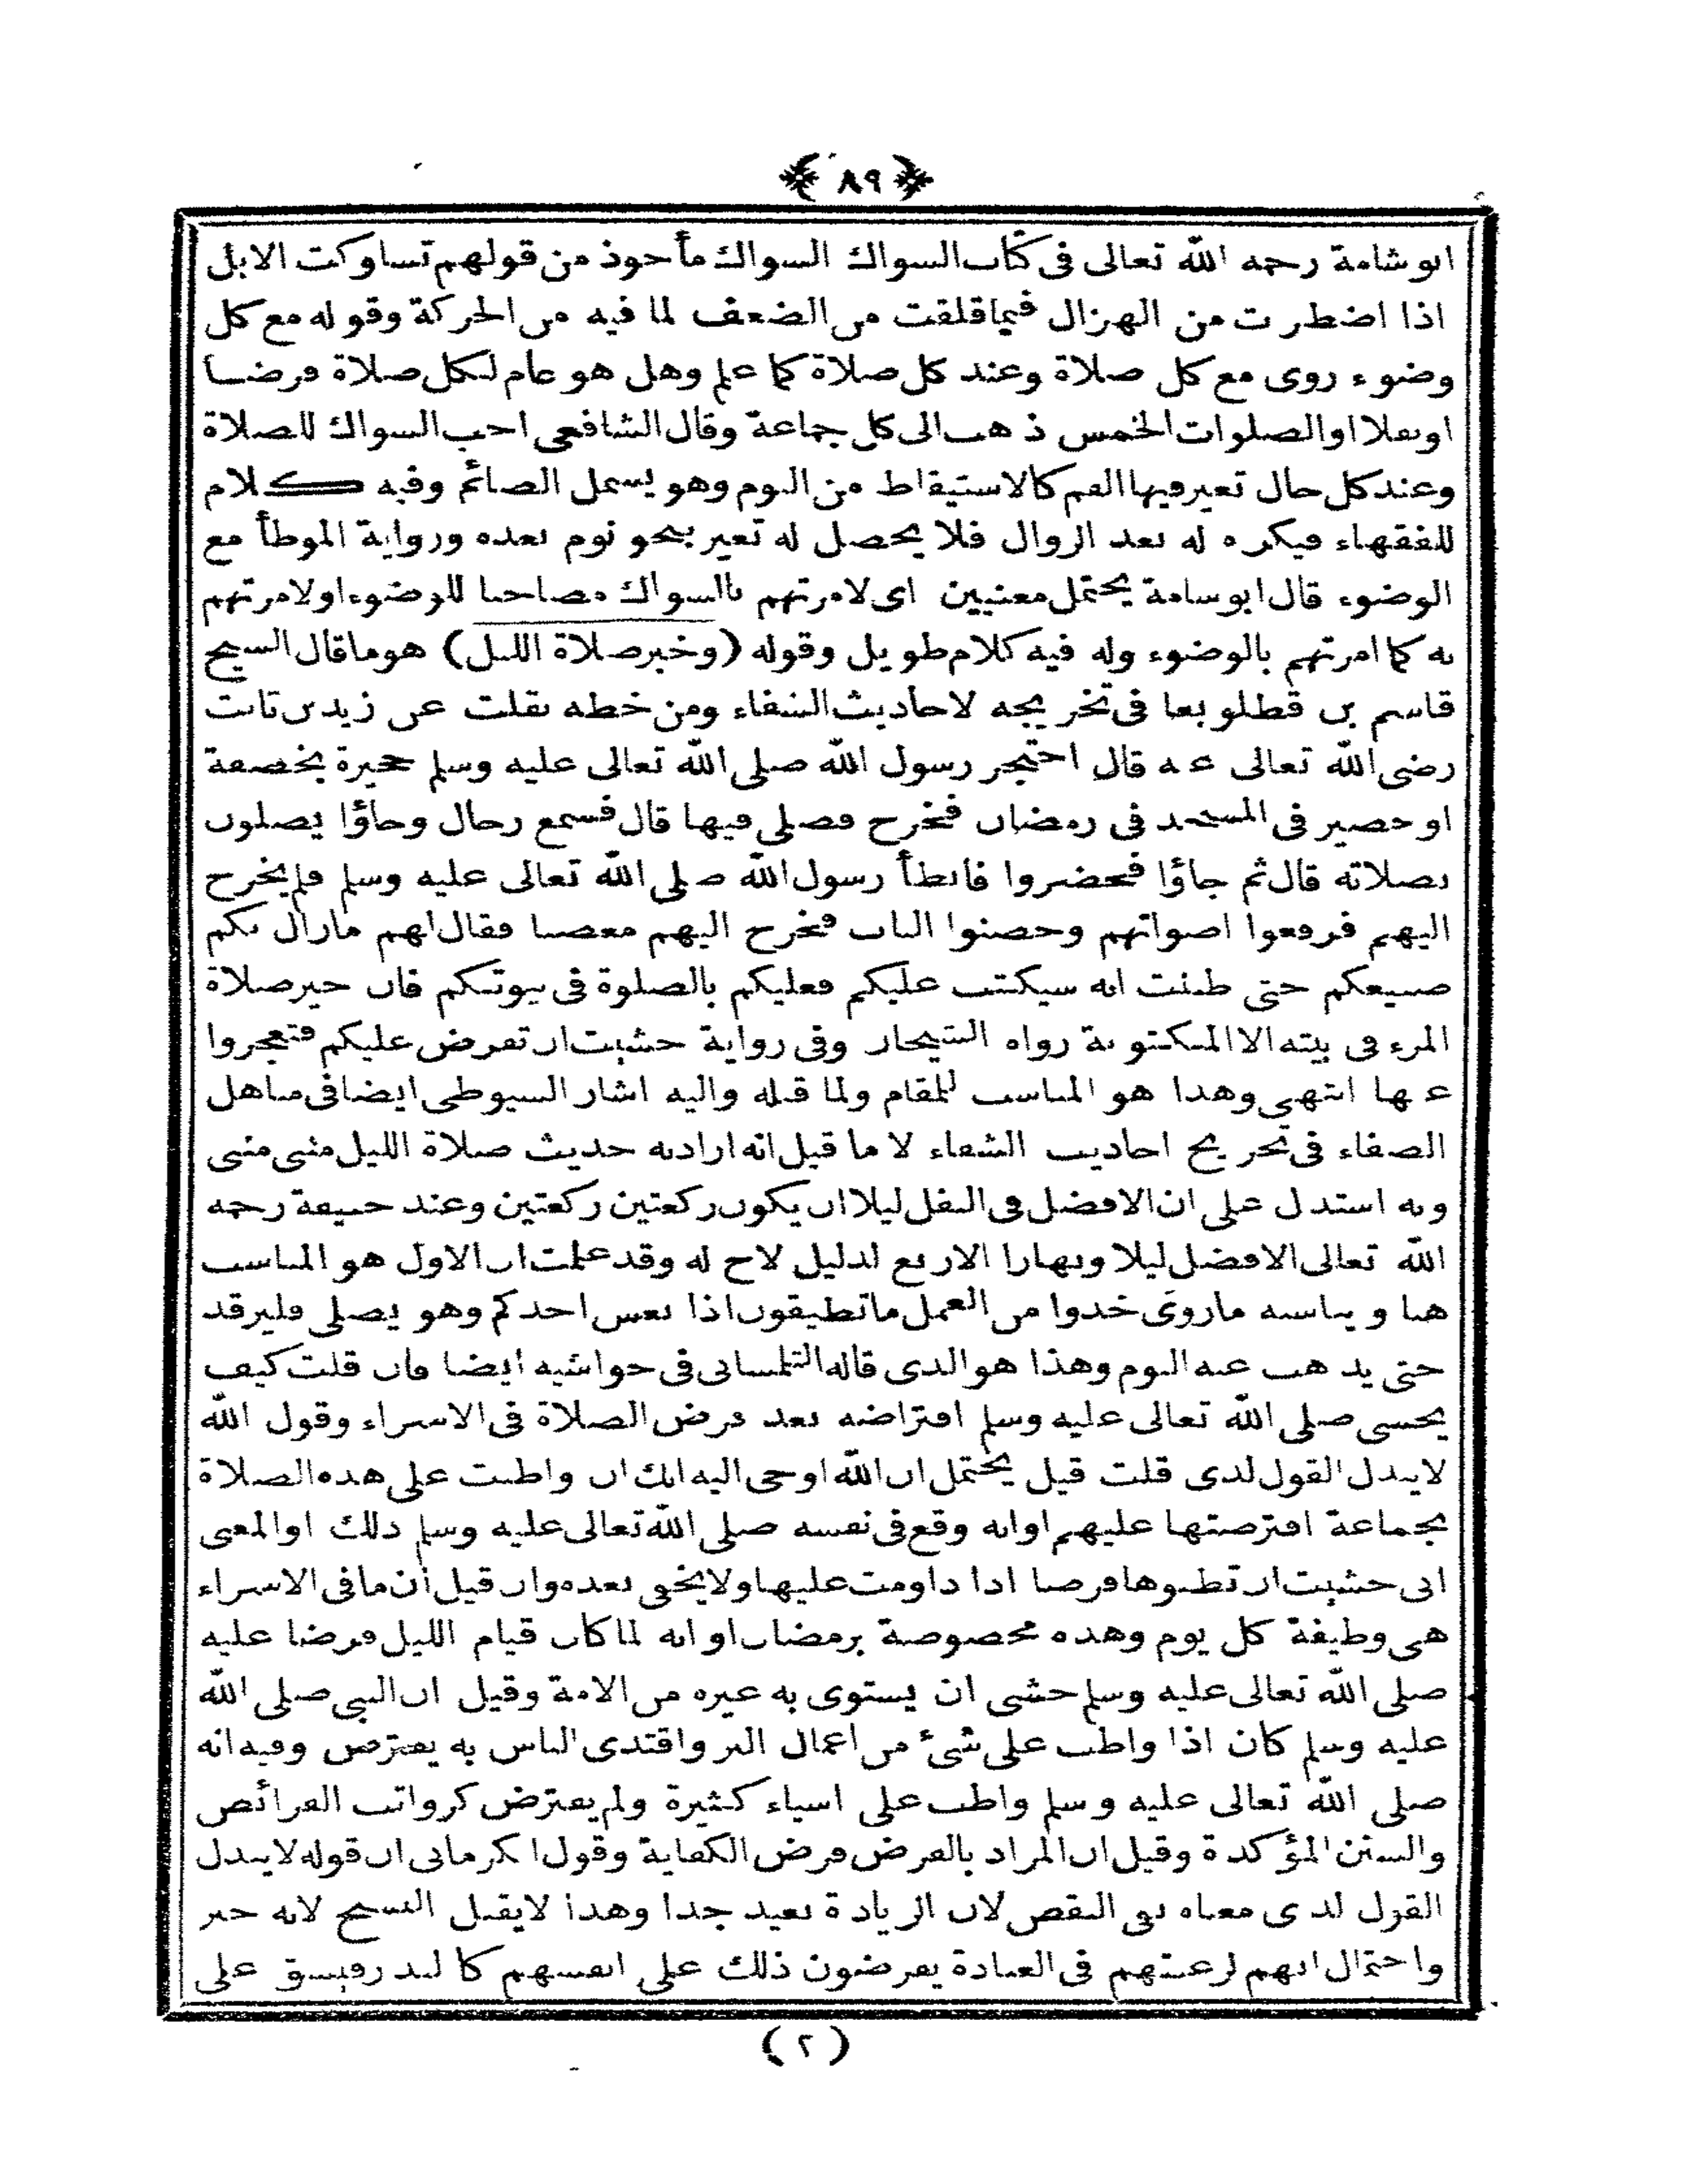 ﴿ ٨٩ ﴾
ابو شامة رحمه الله تعالى فى كتاب السواك السواك مأخوذ من قولهم تساوكت الابل
اذا اضطربت من الهزال فيما قلقت من الضعف لما فيه من الحركة وقوله مع كل
وضوء روى مع كل صلاة وعند كل صلاة كما علم وهل هو عام لكل صلاة فرضا
اونفلا اوالصلوات الخمس ذهب الى كل جماعة وقال الشافعى احب السواك للصلاة
وعند كل حال تغير فيها الفم كالاستيقاظ من النوم وهو يشمل الصائم وفيه كلام
للفقهاء فيكره له بعد الزوال فلا يحصل له تغير بنحو نوم بعده ورواية الموطأ مع
الوضوء قال ابو شامة يحتمل معنيين اى لامرتهم بالسواك مصاحبا للوضوء اولامرتهم
به كما امرتهم بالوضوء وله فيه كلام طويل وقوله (وخبر صلاة الليل) هو ماقال الشيخ
قاسم بن قطلوبغا فى تخريجه لاحاديث الشفاء ومن خطه نقلت عن زيد بن ثابت
رضى الله تعالى عنه قال احتجر رسول الله صلى الله تعالى عليه وسلم حجيرة بخصفة
او حصير فى المسجد فى رمضان فخرج فصلى فيها قال فسمع رجال وجاؤا يصلون
بصلاته قال ثم جاؤا فحضروا فابطأ رسول الله صلى الله تعالى عليه وسلم فلم يخرج
اليهم فرفعوا اصواتهم وحصبوا الباب فخرج اليهم مغضبا فقال لهم مازال بكم
صنيعكم حتى ظننت انه سيكتب عليكم فعليكم بالصلوة فى بيوتكم فان خير صلاة
المرء فى بيته الا المكتوبة رواه الشيخان وفى رواية خشيت ان تفرض عليكم فتعجزوا
عنها انتهى وهذا هو المناسب للمقام ولما قبله واليه اشار السيوطى ايضا فى مناهل
الصفاء فى تخريج احاديث الشفاء لا ما قيل انه اراد به حديث صلاة الليل مثنى مثنى
وبه استدل على ان الافضل فى النفل ليلا ان يكون ركعتين ركعتين وعند حنيفة رحمه
الله تعالى الافضل ليلا ونهارا الاربع لدليل لاح له وقد علمت ان الاول هو المناسب
هنا ويناسبه ماروى خذوا من العمل ماتطيقون اذا نعس احدكم وهو يصلى فليرقد
حتى يذهب عنه النوم وهذا هو الذى قاله التلمسانى فى حواشيه ايضا فان قلت كيف
يخشى صلى الله تعالى عليه وسلم افتراضه بعد فرض الصلاة فى الاسراء وقول الله
لايبدل القول لدى قلت قيل يحتمل ان الله اوحى اليه انك ان واظبت على هذه الصلاة
بجماعة افترضتها عليهم اوانه وقع فى نفسه صلى الله تعالى عليه وسلم ذلك اوالمعنى
انى خشيت ان تظنوها فرضا اذا داومت عليها ولايخفى بعده وان قيل أن مافى الاسراء
هى وظيفة كل يوم وهذه مخصوصة برمضان اوانه لما كان قيام الليل فرضا عليه
صلى الله تعالى عليه وسلم خشى ان يستوى به غيره من الامة وقيل ان النبى صلى الله
عليه وسلم كان اذا واظب على شئ من اعمال البر واقتدى الناس به يفترض وفيه انه
صلى الله تعالى عليه وسلم واظب على اشياء كثيرة ولم يفترض كرواتب الفرائض
والسنن المؤكدة وقيل ان المراد بالفرض فرض الكفاية وقول الكرمانى ان قوله لايبدل
القول لدى معناه نفى النقص لان الزيادة بعيد جدا وهذا لايقبل النسخ لانه خبر
واحتمال انهم لرغبتهم فى العبادة يفرضون ذلك على انفسهم كالنذر فيسق على
( ٢ )